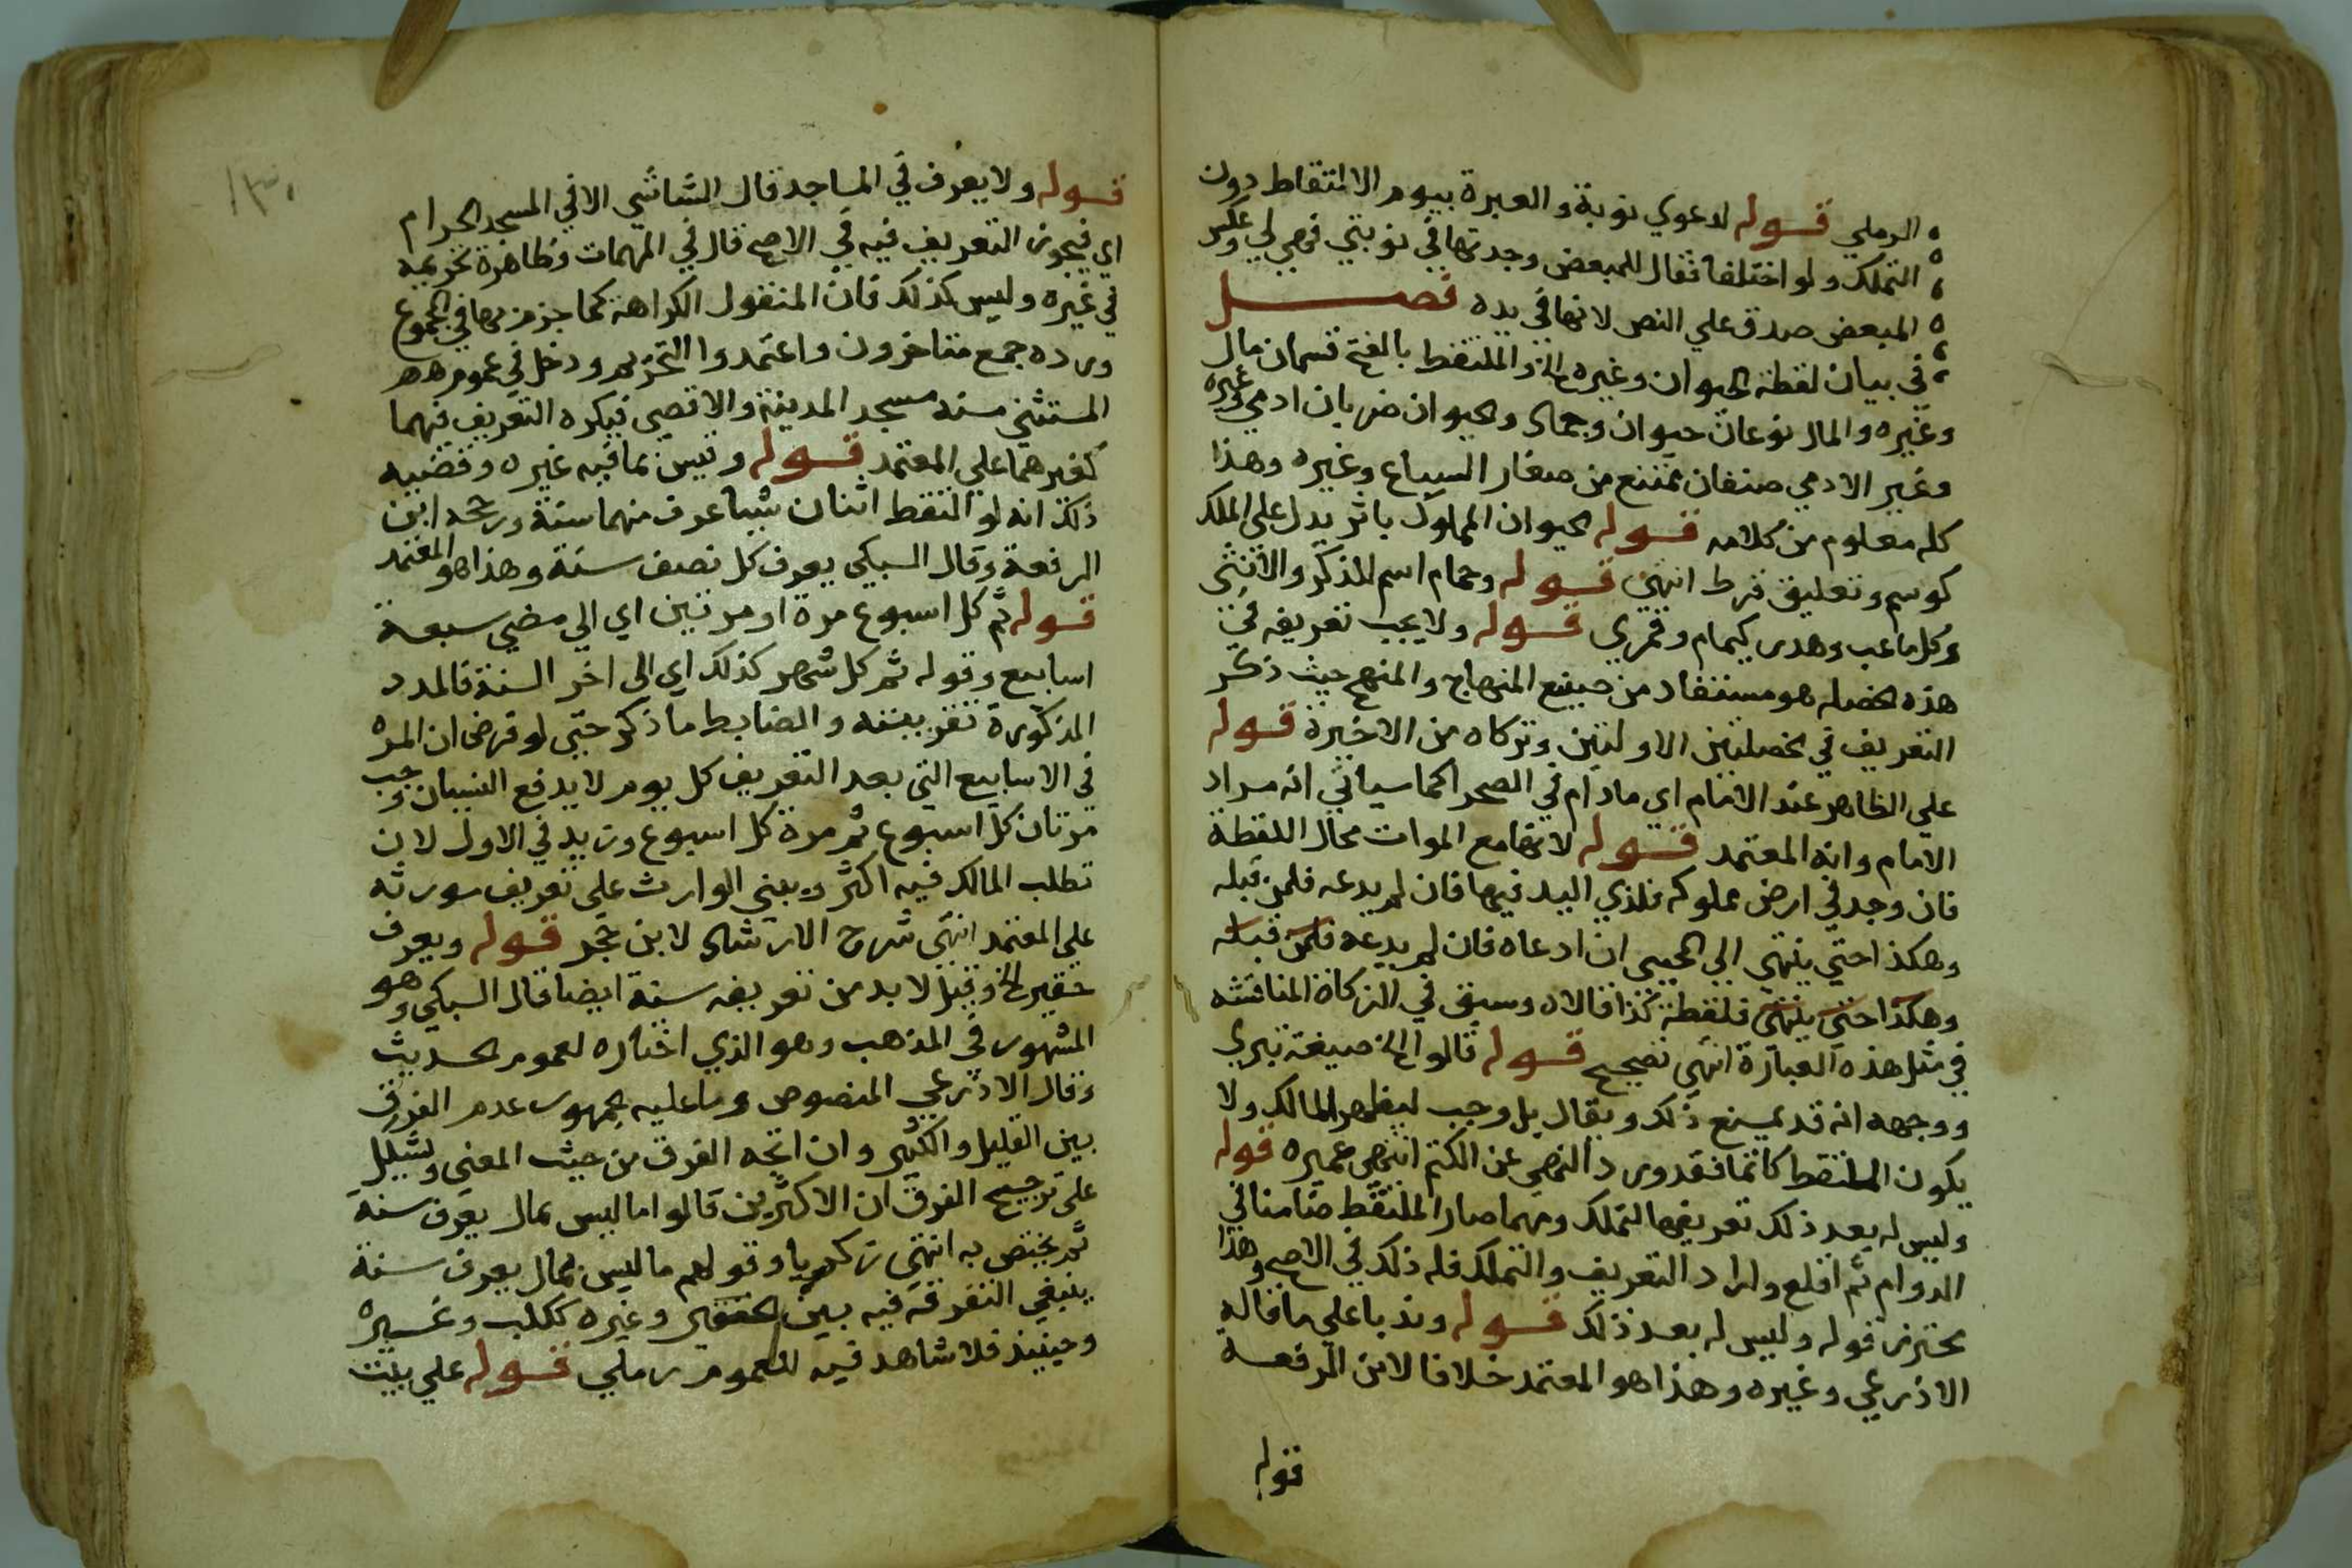 الرملي قوله لدعوي نوبة والعبرة بيوم الالتقاط دون
التملك ولو اختلفا فقال المبعض وجدتها في نوبتي فهي لي وعكس
المبعض صدق علي النص لانها في يده فصل
في بيان لقطة الحيوان وغيره الخ والملتقط بالفتح قسمان مال
وغيره والمال نوعان حيوان وجماد والحيوان ضربان ادمي وغيره
وغير الادمي صنفان ممتنع من صغار السباع وغيره وهذا
كله معلوم من كلامه قوله الحيوان المملوك باثر يدل على الملك
كوسم وتعليق قرط انتهى قوله وحمام اسم للذكر والانثى
وكل ما عب وهدر كيمام وقمري قوله ولا يجب تعريفه في
هذه الخصله هو مستفاد من صنيع المنهاج والمنهج حيث ذكر
التعريف في الخصلتين الاولتين وتركاه من الاخيرة قوله
علي الظاهر عند الامام اى مادام في الصحرا كما سياتي انه مراد
الامام وانه المعتمد قوله لانها مع الموات محال اللقطة
فان وجد في ارض مملوكه فلذي اليد فيها فان لم يدعه فلمن قبله
وهكذا حتي ينتهي الي المحيي ان ادعاه فان لم يدعه فلمن قبله
وهكذا حتى ينتهي فلقطة كذا قالاه وسبق في الزكاة المناقشه
في مثل هذه العبارة انتهى تصحيح قوله قالوا الخ صيغة تبري
ووجهه انه قد يمنع ذلك ويقال بل وجب ليظهر المالك ولا
يكون الملتقط كاتما فقد ورد النهي عن الكتم انتهى عميره قوله
وليس له بعد ذلك تعريفها لتملك ومهما صار الملتقط ضامنا في
الدوام ثم اقلع واراد التعريف والتملك فله ذلك في الاصح وهذا
محترز قوله وليس له بعد ذلك قوله وندبا علي ما قاله
الاذرعي وغيره وهذا هو المعتمد خلافا لابن الرفعه
قوله
١٣٠
قوله ولا يعرف في المساجد قال الشاشي الا في المسجد الحرام
اي فيجوز التعريف فيه في الاصح قال في المهمات وظاهره تحريمه
في غيره وليس كذلك فان المنقول الكراهة كما جزم بها في المجموع
ورده جمع متاخرون واعتمدوا التحريم ودخل في عموم
المستثني منه مسجد المدينة والاقصى فيكره التعريف فيهما
كغيرهما علي المعتمد قوله وتبين بما فيه غيره وقضيه
ذلك انه لو التقط اثنان شيا عرف منهما سنة ورجحه ابن
الرفعة وقال السبكي يعرف كل نصف سنة وهذا هو المعتمد
قوله ثم كل اسبوع مرة او مرتين اي الي مضي سبعة
اسابيع وقوله ثم كل شهر كذلك اي الي اخر السنة فالمدد
المذكورة تقريبيه والضابط ما ذكر حتي لو فرض ان المره
في الاسابيع التي بعد التعريف كل يوم لا يدفع النسيان وجب
مرتان كل اسبوع ثم مرة كل اسبوع وزيد في الاول لان
تطلب المالك فيه اكثر ويبني الوارث على تعريف مورثه
على المعتمد انتهى شرح الارشاد لابن حجر قوله ويعرف
حقير الخ وقيل لا بد من تعريفه سنة ايضا قال السبكي وهو
المشهور في المذهب وهو الذي اختاره لعموم الحديث
وقال الاذرعي المنصوص وما عليه الجمهور عدم الفرق
بين القليل والكثير وان اتجه الفرق من حيث المعنى
على ترجيح الفرق ان الاكثرين قالوا ما ليس بمال يعرف سنة
ثم يختص به انتهى زكريا وقولهم ما ليس بمال يعرف سنة
ينبغي التفرقة فيه بين الحقير وغيره ككلب وغيره
وحينيذ فلا شاهد فيه للعموم رملي قوله علي بيت